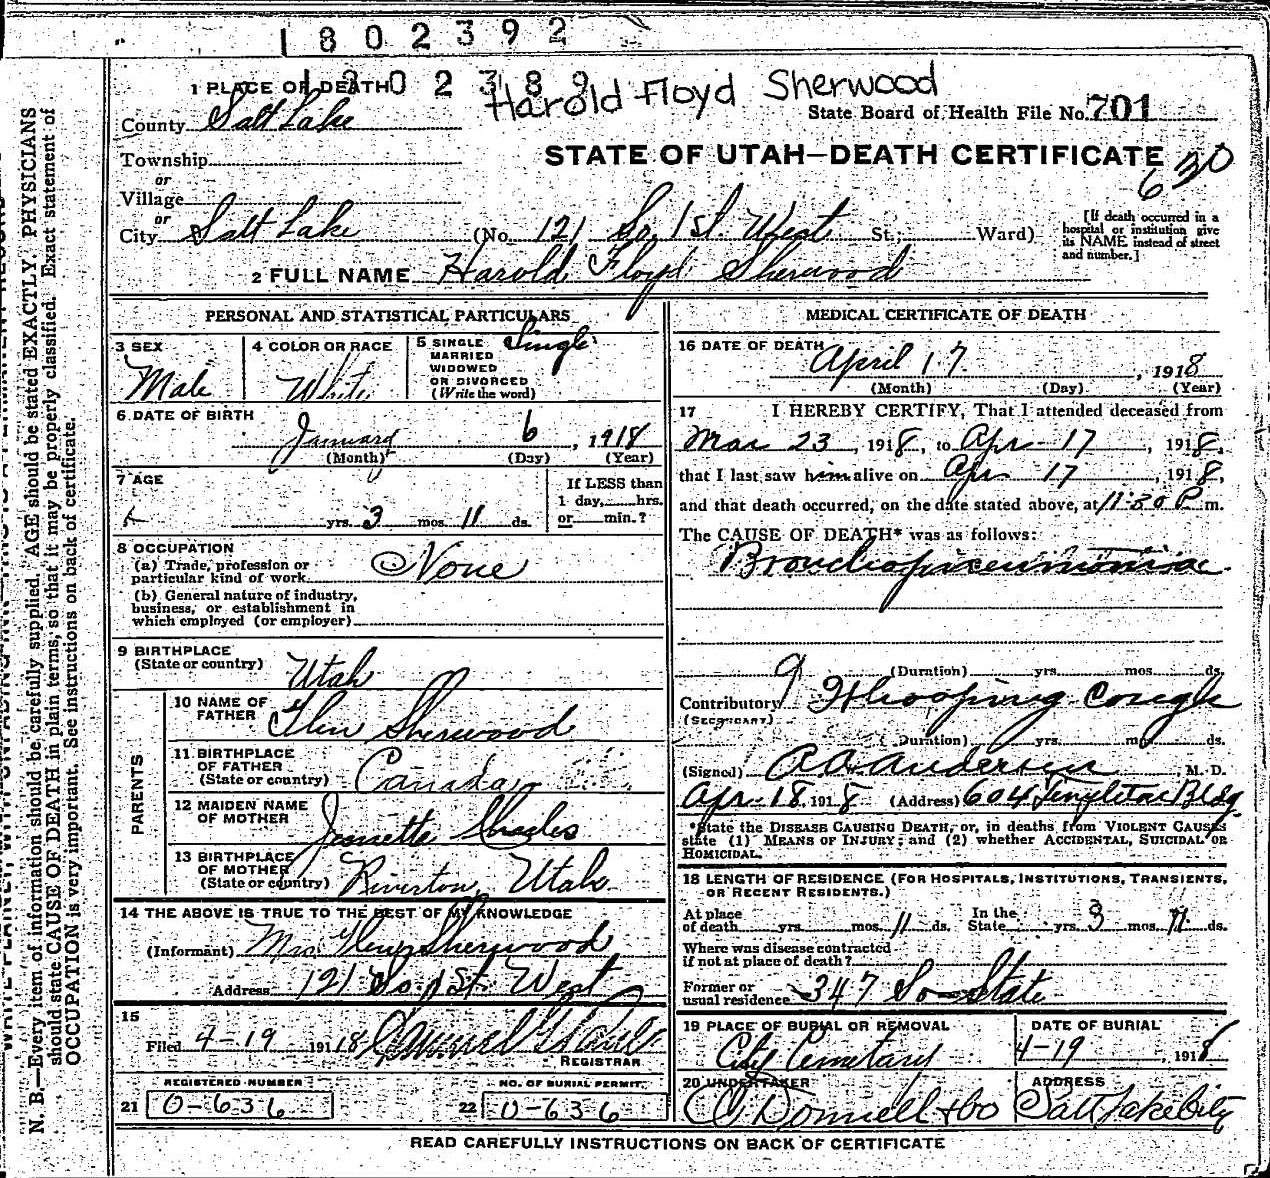 1802392
1802389
Harold Floyd Sherwood
1 PLACE OF DEATH
County Salt Lake
State Board of Health File No. 701
STATE OF UTAH—DEATH CERTIFICATE
630
Township
or
Village
or
City Salt Lake (No. 121 So. 1st. West St.; Ward)
[If death occurred in a hospital or institution give its NAME instead of street and number.]
2 FULL NAME Harold Floyd Sherwood
PERSONAL AND STATISTICAL PARTICULARS
3 SEX
Male
4 COLOR OR RACE
White
5 SINGLE MARRIED WIDOWED OR DIVORCED (Write the word)
Single
6 DATE OF BIRTH
January 6, 1918
(Month) (Day) (Year)
7 AGE
yrs. 3 mos. 11 ds.
If LESS than 1 day, hrs. or min.?
8 OCCUPATION
(a) Trade, profession or particular kind of work None
(b) General nature of industry, business, or establishment in which employed (or employer)
9 BIRTHPLACE
(State or country) Utah
PARENTS
10 NAME OF FATHER Glen Sherwood
11 BIRTHPLACE OF FATHER (State or country) Canada
12 MAIDEN NAME OF MOTHER Jennette
13 BIRTHPLACE OF MOTHER (State or country) Riverton, Utah
14 THE ABOVE IS TRUE TO THE BEST OF MY KNOWLEDGE
(Informant) Mrs. Glen Sherwood
Address 121 So. 1st. West
15
Filed 4-19 1918
REGISTRAR
REGISTERED NUMBER
21 0-636
NO. OF BURIAL PERMIT
22 0-636
MEDICAL CERTIFICATE OF DEATH
16 DATE OF DEATH
April 17, 1918
(Month) (Day) (Year)
17 I HEREBY CERTIFY, That I attended deceased from
Mar 23, 1918, to Apr 17, 1918,
that I last saw him alive on Apr 17, 1918,
and that death occurred, on the date stated above, at 11:30 P m.
The CAUSE OF DEATH* was as follows:
Bronchopneumonia
9 (Duration) yrs. mos. ds.
Contributory Whooping Cough
(SECONDARY)
(Duration) yrs. mos. ds.
(Signed) A.A. Andersen M. D.
Apr 18. 1918 (Address) 604 Templeton Bldg
*State the DISEASE CAUSING DEATH, or, in deaths from VIOLENT CAUSES state (1) MEANS OF INJURY; and (2) whether ACCIDENTAL, SUICIDAL OR HOMICIDAL.
18 LENGTH OF RESIDENCE (FOR HOSPITALS, INSTITUTIONS, TRANSIENTS, OR RECENT RESIDENTS.)
At place of death yrs. mos. 11 ds. In the State yrs. 3 mos. 11 ds.
Where was disease contracted if not at place of death?
Former or usual residence 347 So State
19 PLACE OF BURIAL OR REMOVAL
City Cemetary
DATE OF BURIAL
4-19, 1918
20 UNDERTAKER
O'Donnell & Co
ADDRESS
Salt Lake City
READ CAREFULLY INSTRUCTIONS ON BACK OF CERTIFICATE
N. B.—Every item of information should be carefully supplied. AGE should be stated EXACTLY. PHYSICIANS
should state CAUSE OF DEATH in plain terms, so that it may be properly classified. Exact statement of
OCCUPATION is very important. See instructions on back of certificate.